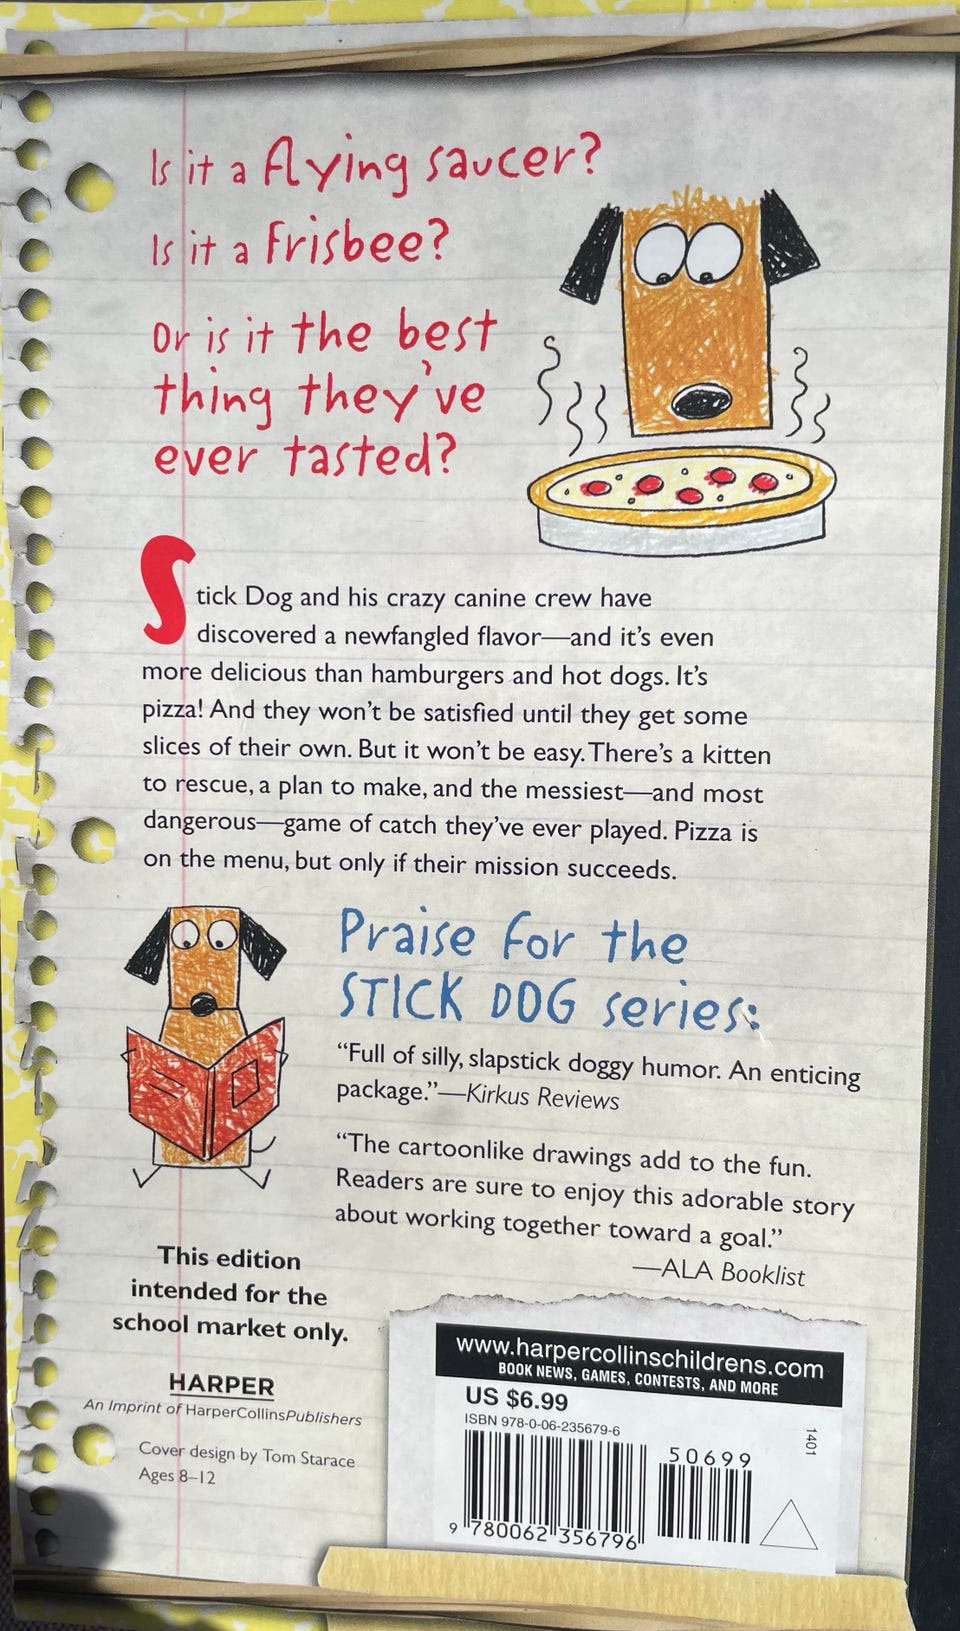 Is it a flying saucer?
Is it a Frisbee?
Or is it the best
thing they've
ever tasted?
Stick Dog and his crazy canine crew have
discovered a newfangled flavor—and it's even
more delicious than hamburgers and hot dogs. It's
pizza! And they won't be satisfied until they get some
slices of their own. But it won't be easy. There's a kitten
to rescue, a plan to make, and the messiest—and most
dangerous—game of catch they've ever played. Pizza is
on the menu, but only if their mission succeeds.
Praise for the
STICK DOG series:
“Full of silly, slapstick doggy humor. An enticing
package.”—Kirkus Reviews
“The cartoonlike drawings add to the fun.
Readers are sure to enjoy this adorable story
about working together toward a goal.”
—ALA Booklist
This edition
intended for the
school market only.
HARPER
An Imprint of HarperCollinsPublishers
Cover design by Tom Starace
Ages 8–12
www.harpercollinschildrens.com
BOOK NEWS, GAMES, CONTESTS, AND MORE
US $6.99
ISBN 978-0-06-235679-6
50699
1401
9 780062 356796